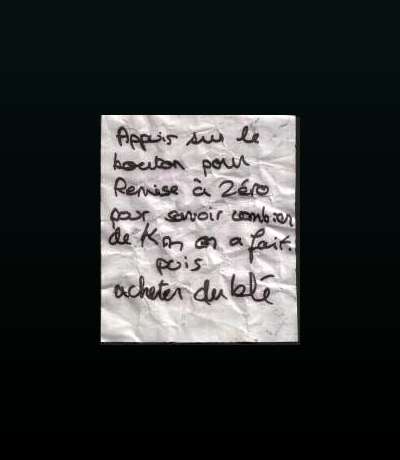 Appuis sur le
bouton pour
Remise à Zéro
pour savoir combien
de Km on a fait.
puis
acheter du blé